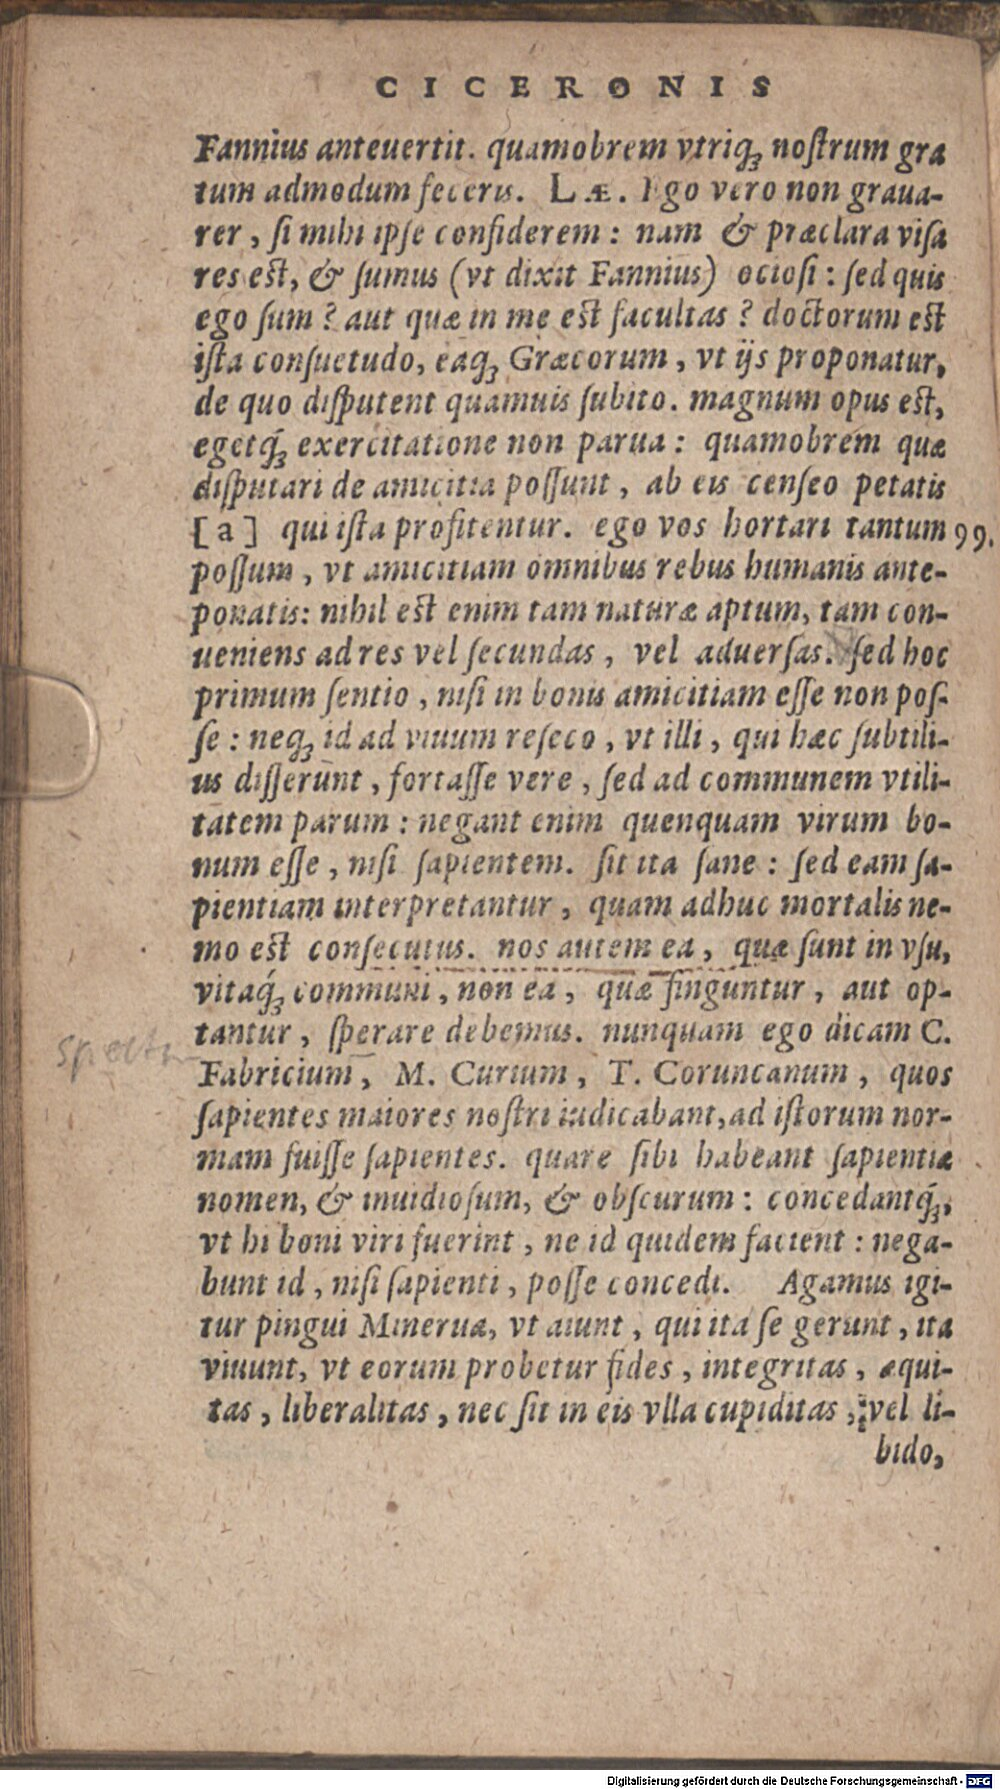 CICERONIS
Fannius anteuertit. quamobrem vtriqꝫ nostrum gra
tum admodum feceris. LÆ. Ego vero non graua-
rer, si mihi ipse confiderem: nam & præclara visa
res est, & sumus (vt dixit Fannius) ociosi: sed quis
ego sum? aut quæ in me est facultas? doctorum est
ista consuetudo, eaqꝫ Græcorum, vt ijs proponatur,
de quo disputent quamuis subito. magnum opus est,
egetq́ꝫ exercitatione non parua: quamobrem quæ
disputari de amicitia possunt, ab eis censeo petatis
[a] qui ista profitentur. ego vos hortari tantum 99.
possum, vt amicitiam omnibus rebus humanis ante-
ponatis: nihil est enim tam naturæ aptum, tam con-
ueniens ad res vel secundas, vel aduersas. sed hoc
primum sentio, nisi in bonis amicitiam esse non pos-
se: neqꝫ id ad viuum reseco, vt illi, qui hæc subtili-
us disserunt, fortasse vere, sed ad communem vtili-
tatem parum: negant enim quenquam virum bo-
num esse, nisi sapientem. sit ita sane: sed eam sa-
pientiam interpretantur, quam adhuc mortalis ne-
mo est consecutus. nos autem ea, quæ sunt in vsu,
vitaq́ꝫ communi, non ea, quæ finguntur, aut op-
tantur, sperare debemus. nunquam ego dicam C.
Fabricium, M. Curium, T. Coruncanum, quos
sapientes maiores nostri iudicabant, ad istorum nor-
mam fuisse sapientes. quare sibi habeant sapientiæ
nomen, & inuidiosum, & obscurum: concedantq́ꝫ,
vt hi boni viri fuerint, ne id quidem facient: nega-
bunt id, nisi sapienti, posse concedi. Agamus igi-
tur pingui Mineruæ, vt aiunt, qui ita se gerunt, ita
viuunt, vt eorum probetur fides, integritas, æqui-
tas, liberalitas, nec sit in eis vlla cupiditas, vel li-
bido,
Digitalisierung gefördert durch die Deutsche Forschungsgemeinschaft - DFG